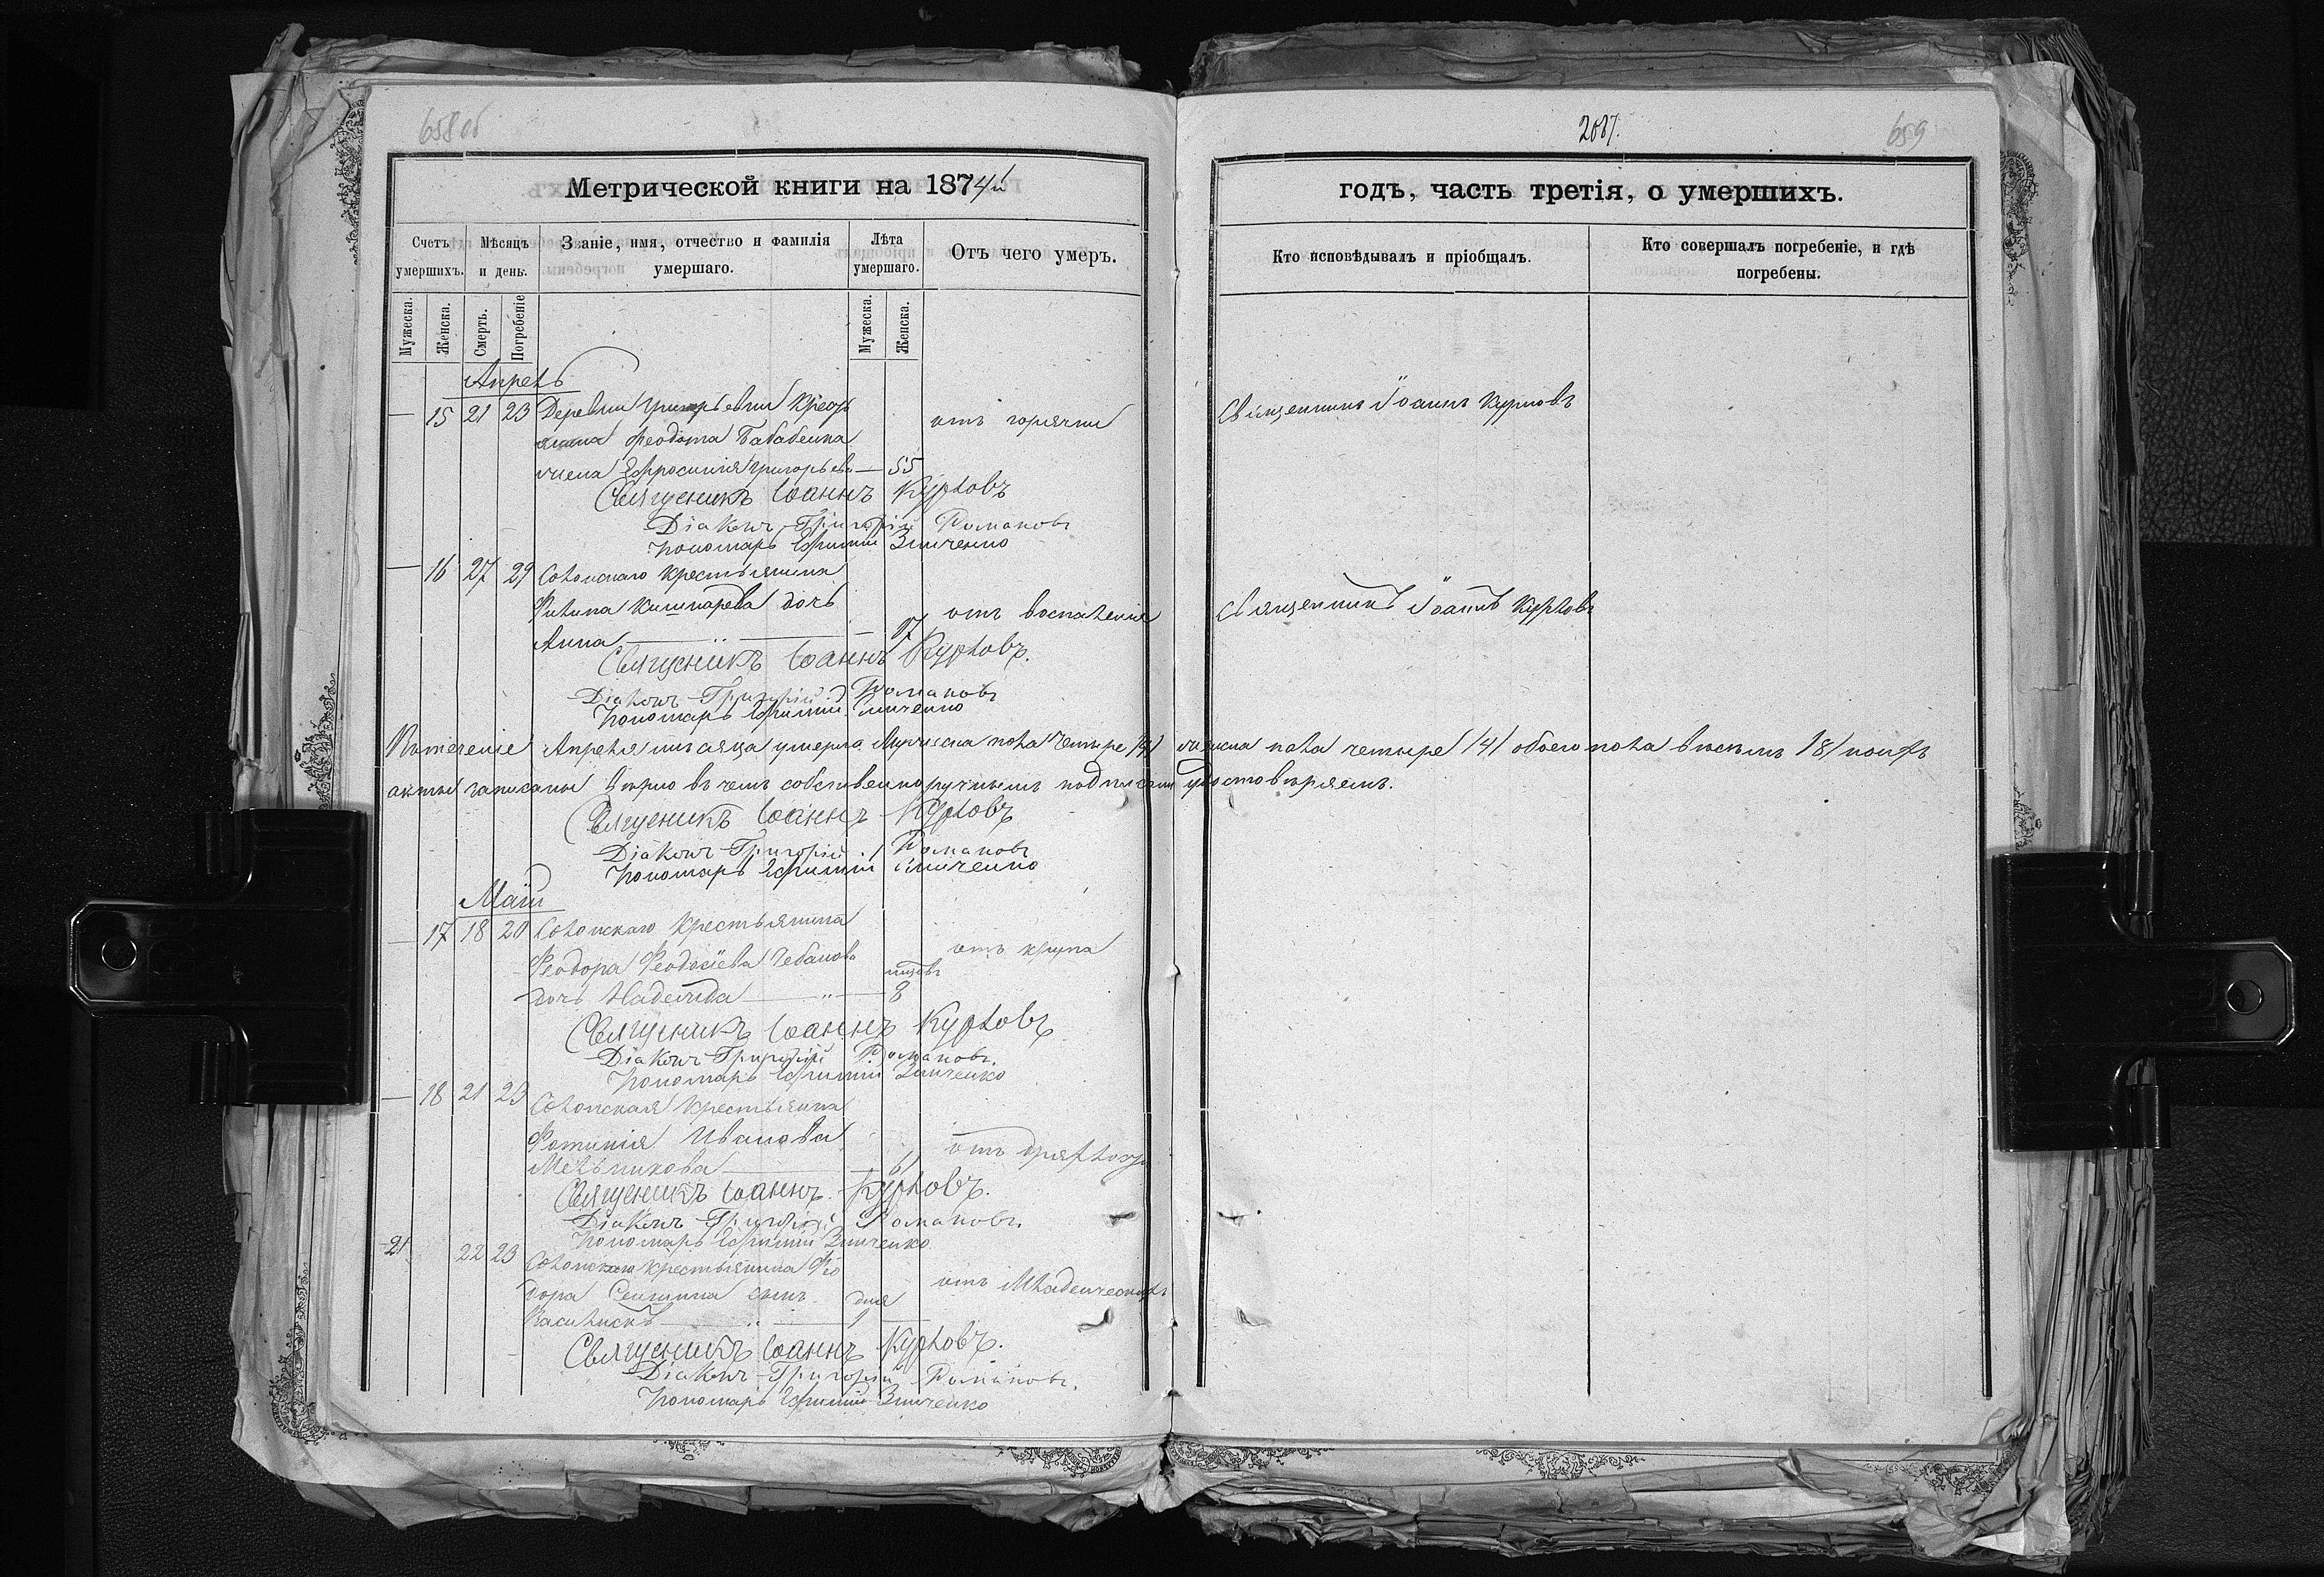 658 об
2087.
659
Метрической книги на 1874й
годъ, часть третія, о умершихъ.
Счетъ умершихъ.
Мѣсяцъ и день.
Званіе, имя, отчество и фамилія умершаго.
Лѣта умершаго.
Отъ чего умеръ.
Кто исповѣдывалъ и пріобщалъ.
Кто совершалъ погребеніе, и гдѣ погребены.
Мужеска.
Женска.
Смерть.
Погребеніе
Мужеска.
Женска.
Апрель
— 15 21 23 Деревни Григорьевки Кресть
янина Феодота Бабабенка отъ горячки Священникъ Іоаннъ Курловъ
жена Ефросинія Григорьева — 55
Священикъ Іоаннъ Курловъ
Діаконъ Григорій Романовъ
Пономарь Ефимій Зинченко
— 16 27 29 Солонскаго крестьянина
дочь отъ воспаленія Священникъ Іоаннъ Курловъ
Анна — " — 17
Священикъ Іоаннъ Курловъ.
Діаконъ Григорій Романовъ
Пономарь Ефимій Зинченко
Втеченіе Апреля месяца умерло Мужеска пола Четыре /4/ женска пола четыре /4/ обоего пола восемь /8/
акты записаны верно въ чемъ собственноручнымъ подписомъ удостоверяемъ.
Священикъ Іоаннъ Курловъ
Діаконъ Григорій Романовъ
Пономарь Ефимій Зинченко
Маій
— 17 18 20 Солонскаго Крестьянина
Феодора Феодосіева Чебанова отъ крупа
дочь Надежда — " — 8
Священикъ Іоаннъ Курловъ
Діаконъ Григорій Романовъ.
Пономарь Ефимій Зинченко
— 18 21 23 Солонская Крестьянка
Фотинія Иванова
Мельникова — 61 отъ
Священикъ Іоаннъ Курловъ.
Діаконъ Григорій Романовъ.
Пономарь Ефимій Зинченко
21 22 23 Солонскаго крестьянина Фео
дора сынъ дня отъ Младенческой
Василискъ — " — 1
Священикъ Іоаннъ Курловъ.
Діаконъ Григорій Романовъ.
Пономарь Ефимій Зинченко